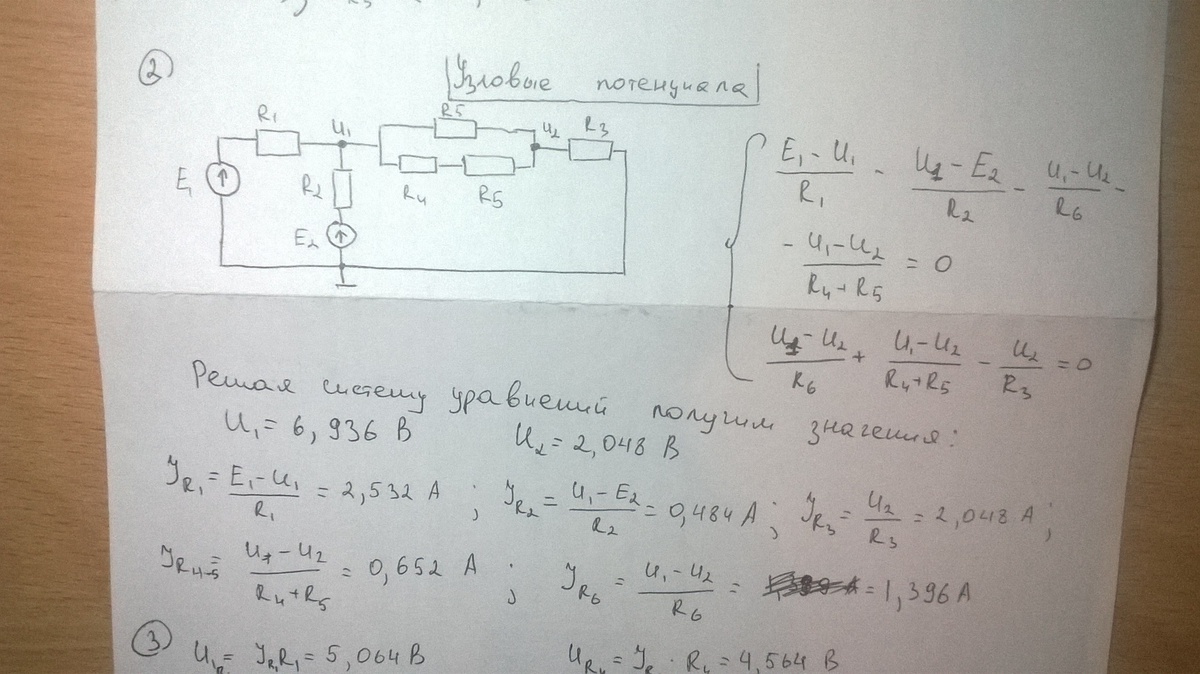 ②
Узловые потенциала
R1 U1 R5 U2 R3
E1 R2 R4 R5
E2
(E1 - U1)/R1 - (U1 - E2)/R2 - (U1 - U2)/R6 -
- (U1 - U2)/(R4 + R5) = 0
(U1 - U2)/R6 + (U1 - U2)/(R4 + R5) - U2/R3 = 0
Решая систему уравнений получим значения:
U1 = 6,936 В U2 = 2,048 В
JR1 = (E1 - U1)/R1 = 2,532 А ; JR2 = (U1 - E2)/R2 = 0,484 А ; JR3 = U2/R3 = 2,048 А ;
JR4-5 = (U1 - U2)/(R4 + R5) = 0,652 А ; JR6 = (U1 - U2)/R6 = = 1,396 А
③ = JR1 R1 = 5,064 В = 4,564 В